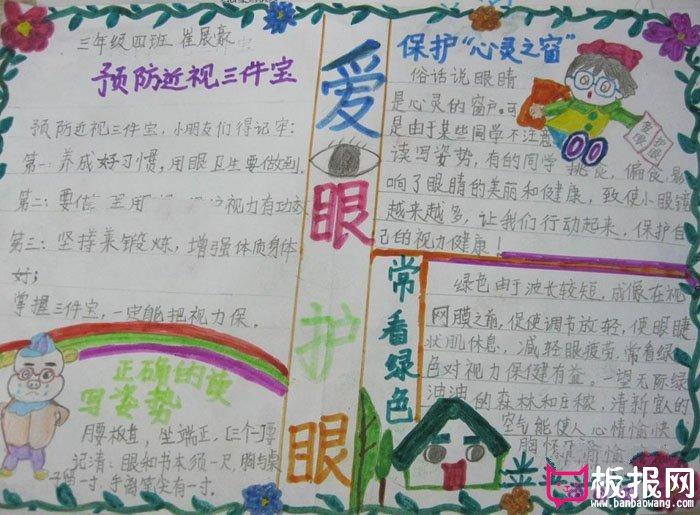 三年级四班 崔展豪
预防近视三件宝
预防近视三件宝,小朋友们得记牢:
第一:养成好习惯,用眼卫生要做到.
第二:要 视力有功
第三:坚持来锻炼,增强体质身体
好;
掌握三件宝,一定能把视力保.
正确的读
写姿势
腰板直,坐端正,【三个一】要
记清:眼和书本须一尺,胸与桌
子留一寸.手离笔尖有一寸.
爱眼护眼
保护“心灵之窗”
俗话说眼睛
是心灵的窗户.可
是由于某些同学不注意
读写姿势,有的同学挑食,偏食.影
响了眼睛的美丽和健康,致使小眼镜
越来越多,让我们行动起来,保护自
己的视力健康!
爱眼护眼
常看绿色
绿色由于波长较短,成像在视
网膜之前,促使调节放轻,使眼睫
状肌休息,减轻眼疲劳.常看绿
色对视力保健有益.一望无际绿
油油的森林和庄稼,清新宜人的
空气能使人心情愉快
胸怀
板报网
www.banbaowang.com